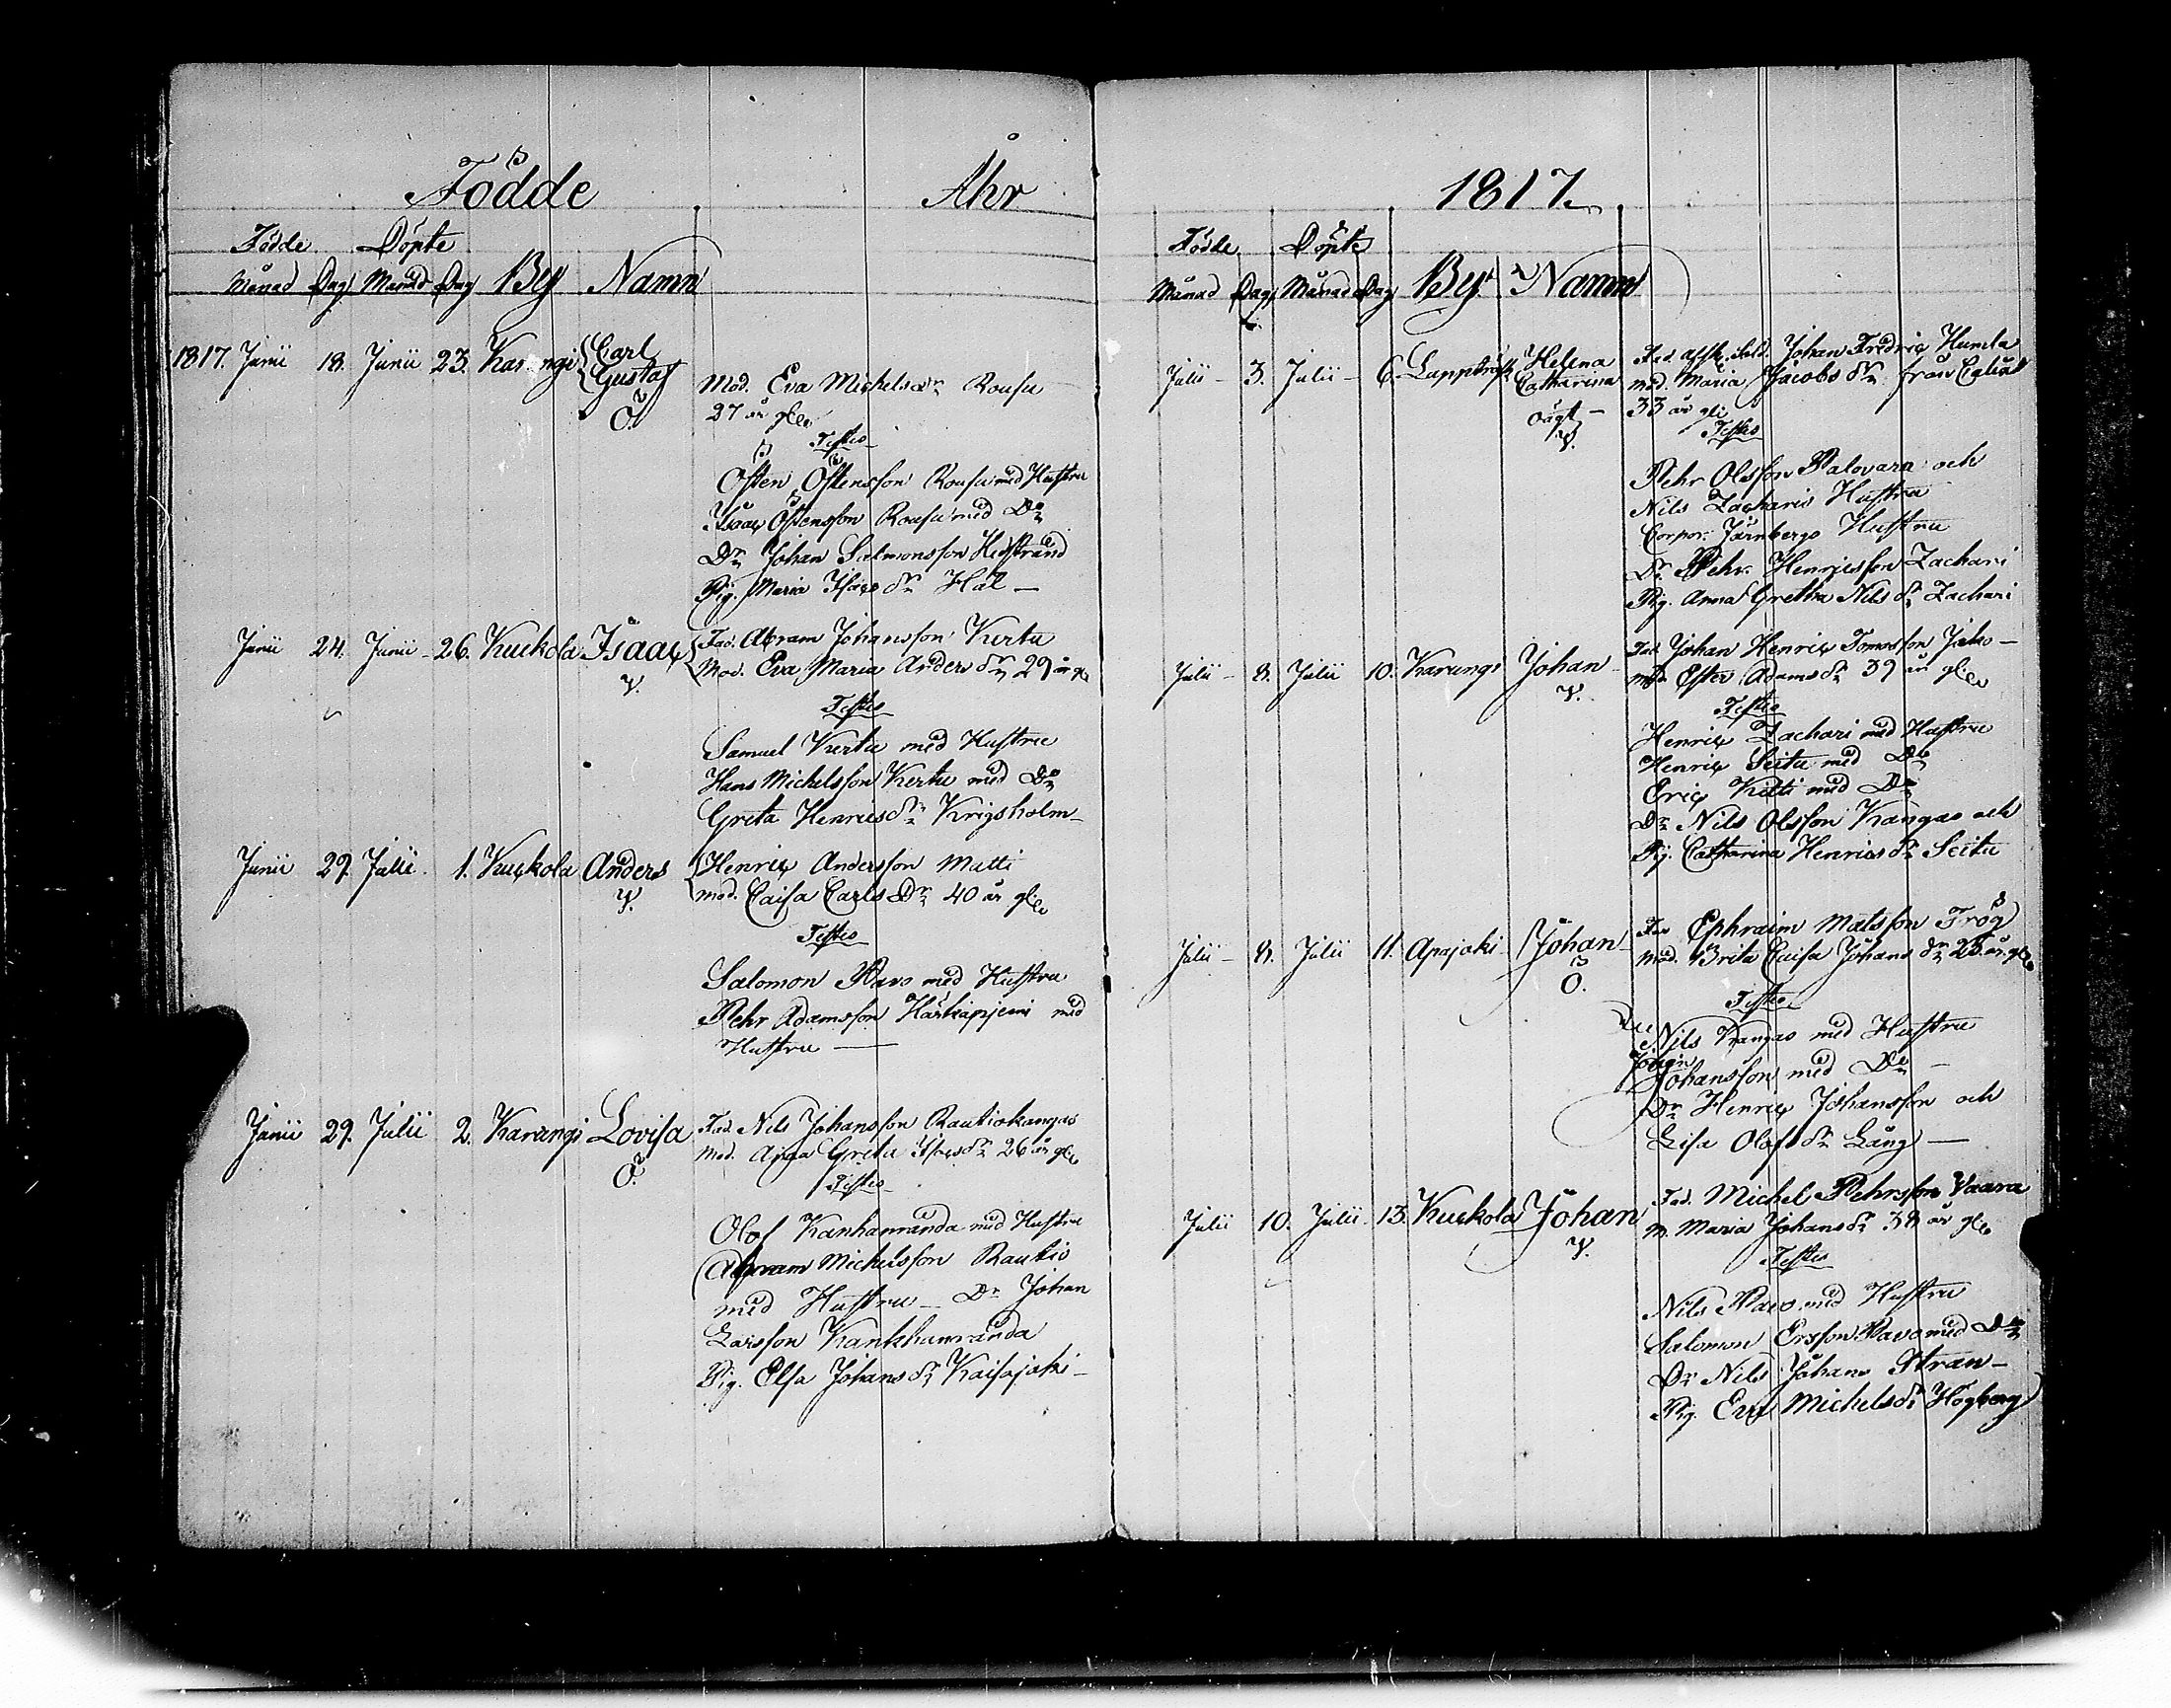 Födde Åhr
Födde Döpte
Månad Dag Månad Dag By Namn
1817. Junii 18. Junii 23. Karungi Carl
Gustaf
Ö.
Mod. Eva Michelsdr Rousu
27 år gl
Testes
Östen Östensson Rousu med Hustru
Isaac Östensson Rousu med Do
Dr Johan Salmonsson
Pig. Maria Isacs dr
Junii 24. Junii 26. Kuckola Isaac
V.
Fad. Abram Johansson Kertu
Mod. Eva Maria Anders dr 29 år gl
Testes
Samuel Kertu med Hustru
Hans Michelsson Kertu med Do
Greta Henricsdr Krigsholm
Junii 29. Julii 1. Kuckola Anders
V.
Henric Andersson Matti
mod. Caisa Carls Dr 40 år gl
Testes
Salomon Pavo med Hustru
Pehr Adamsson med
Hustru
Junii 29. Julii 2. Karungi Lovisa
Ö.
Fad. Nils Johansson Rautiokangas
Mod. Anna Greta Isacsdr 26 år gl
Testes
Olof Kanhanranda med Hustru
Abram Michelsson Rautio
med Hustru Dr Johan
Larsson Kankhanranda
Pig. Elsa Johans dr Kaisajoki
1817.
Födde Döpte
Månad Dag Månad Dag By Namn
Julii 3. Julii 6. Lappträsk Helena
Catharina
oägt
V.
Fad. Johan Fredric Humla
Mod. Maria Jacobs dr från
33 år gl
Testes
Pehr Olsson Palovara och
Nils Zacharis Hustru
Corpor: Järnbergs Hustru
Dr Pehr Henricsson Zachari
Pig. Anna Gretha Nils dr Zachari
Julii 8. Julii 10. Karungi Johan
V.
Fad. Johan Henric Tomasson
Ester Adams dr 39 år gl
Testes
Henric Zachari med Hustru
Henric Seitu med Do
Eric Kitti med Do
Dr Nils Olsson Kangas och
Pig. Catharina Henrics dr Seitu
Julii 8. Julii 11. Apajoki Johan
Ö.
Fad Ephraim Matsson Frög
Mod. Brita Caisa Johans dr 25 år gl
Testes
Nils Kangas med Hustru
Johan
Johansson med Do
Dr Henric Johansson och
Lisa Olofs dr Lång
Julii 10. Julii 13. Kuckola Johan
V.
Fad. Michel Pehrsson Vaara
M. Maria Johansdr 38 år gl
Testes
Nils Pavo med Hustru
Salomon Ersson Pavo med Do
Dr Nils Johans Stran
Pig. Eva Michelsdr Högberg